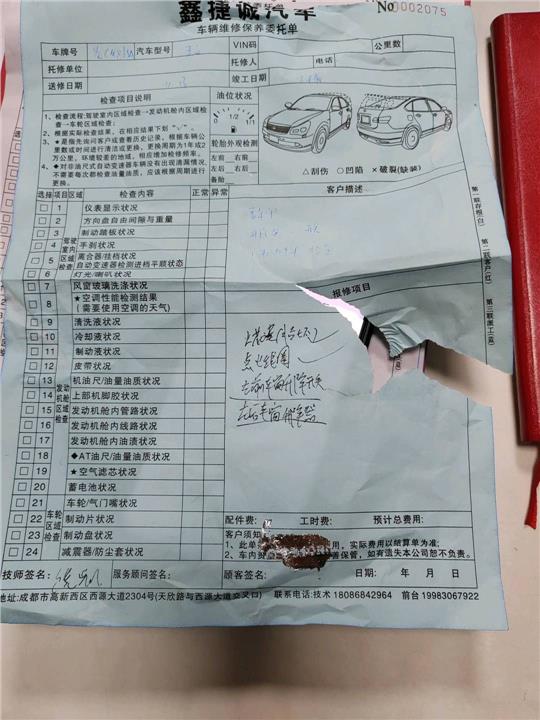 鑫捷诚汽车
车辆维修保养委托单
No 0002075
车牌号 汽车型号 VIN码 公里数
托修单位 托修人 电话
送修日期 竣工日期
检查项目说明
1、检查流程:驾驶室内区域检查→发动机舱内区域检查→车轮区域检查;
2、根据实际检查结果,在相应结果下划"✓"。
3、★是指先询问客户或查看历史记录,根据车辆公里数或时间进行清洁或更换,更换周期为1年或2万公里,环境较差的地域,相应增加检修频率。
4、◆对非油尺式自动变速器车辆没有出现渭漏情况,不需要每次都检查油量油质,应该根据周期进行更换。
油位状况
0 1/2 1/1
轮胎外观检测
左前 右前
左后 右后
备胎
△刮伤 ○凹陷 ×破裂(缺装)
选择 项目 区域 检查内容 正常 异常
客户描述
驾驶室内区域检查
1 仪表显示状况
2 方向盘自由间隙与重量
3 制动踏板状况
4 手刹状况
5 离合器/挂档状况
自动变速器检测进档平顺状态
6 灯光/喇叭状况
7 风窗玻璃洗涤状况
8 ★空调性能检测结果
(需要使用空调的天气)
报修项目
发动机舱区域检查
9 清洗液状况
10 冷却液状况
11 制动液状况
12 皮带状况
13 机油尺/油量油质状况
14 上部机脚胶状况
15 发动机舱内管路状况
16 发动机舱内线路状况
17 发动机舱内油渍状况
18 ◆AT油尺/油量油质状况
19 ★空气滤芯状况
20 蓄电池状况
点火线圈
左前车窗升降开关
左后车窗升降器
车轮区域检查
21 车轮/气门嘴状况
22 制动片状况
23 制动盘状况
24 减震器/防尘套状况
第一联存根(白) 第二联客户(红) 第三联派工(蓝)
配件费: 工时费: 预计总费用:
客户须知
1、此单 用,实际费用以结算单为准;
2、车内 善保管,如有遗失本公司恕不负责。
技师签名: 服务顾问签名: 顾客签名: 日期: 年 月 日
地址:成都市高新西区西源大道2304号(天欣路与西源大道交叉口) 联系电话:技术 18086842964 前台 19983067922